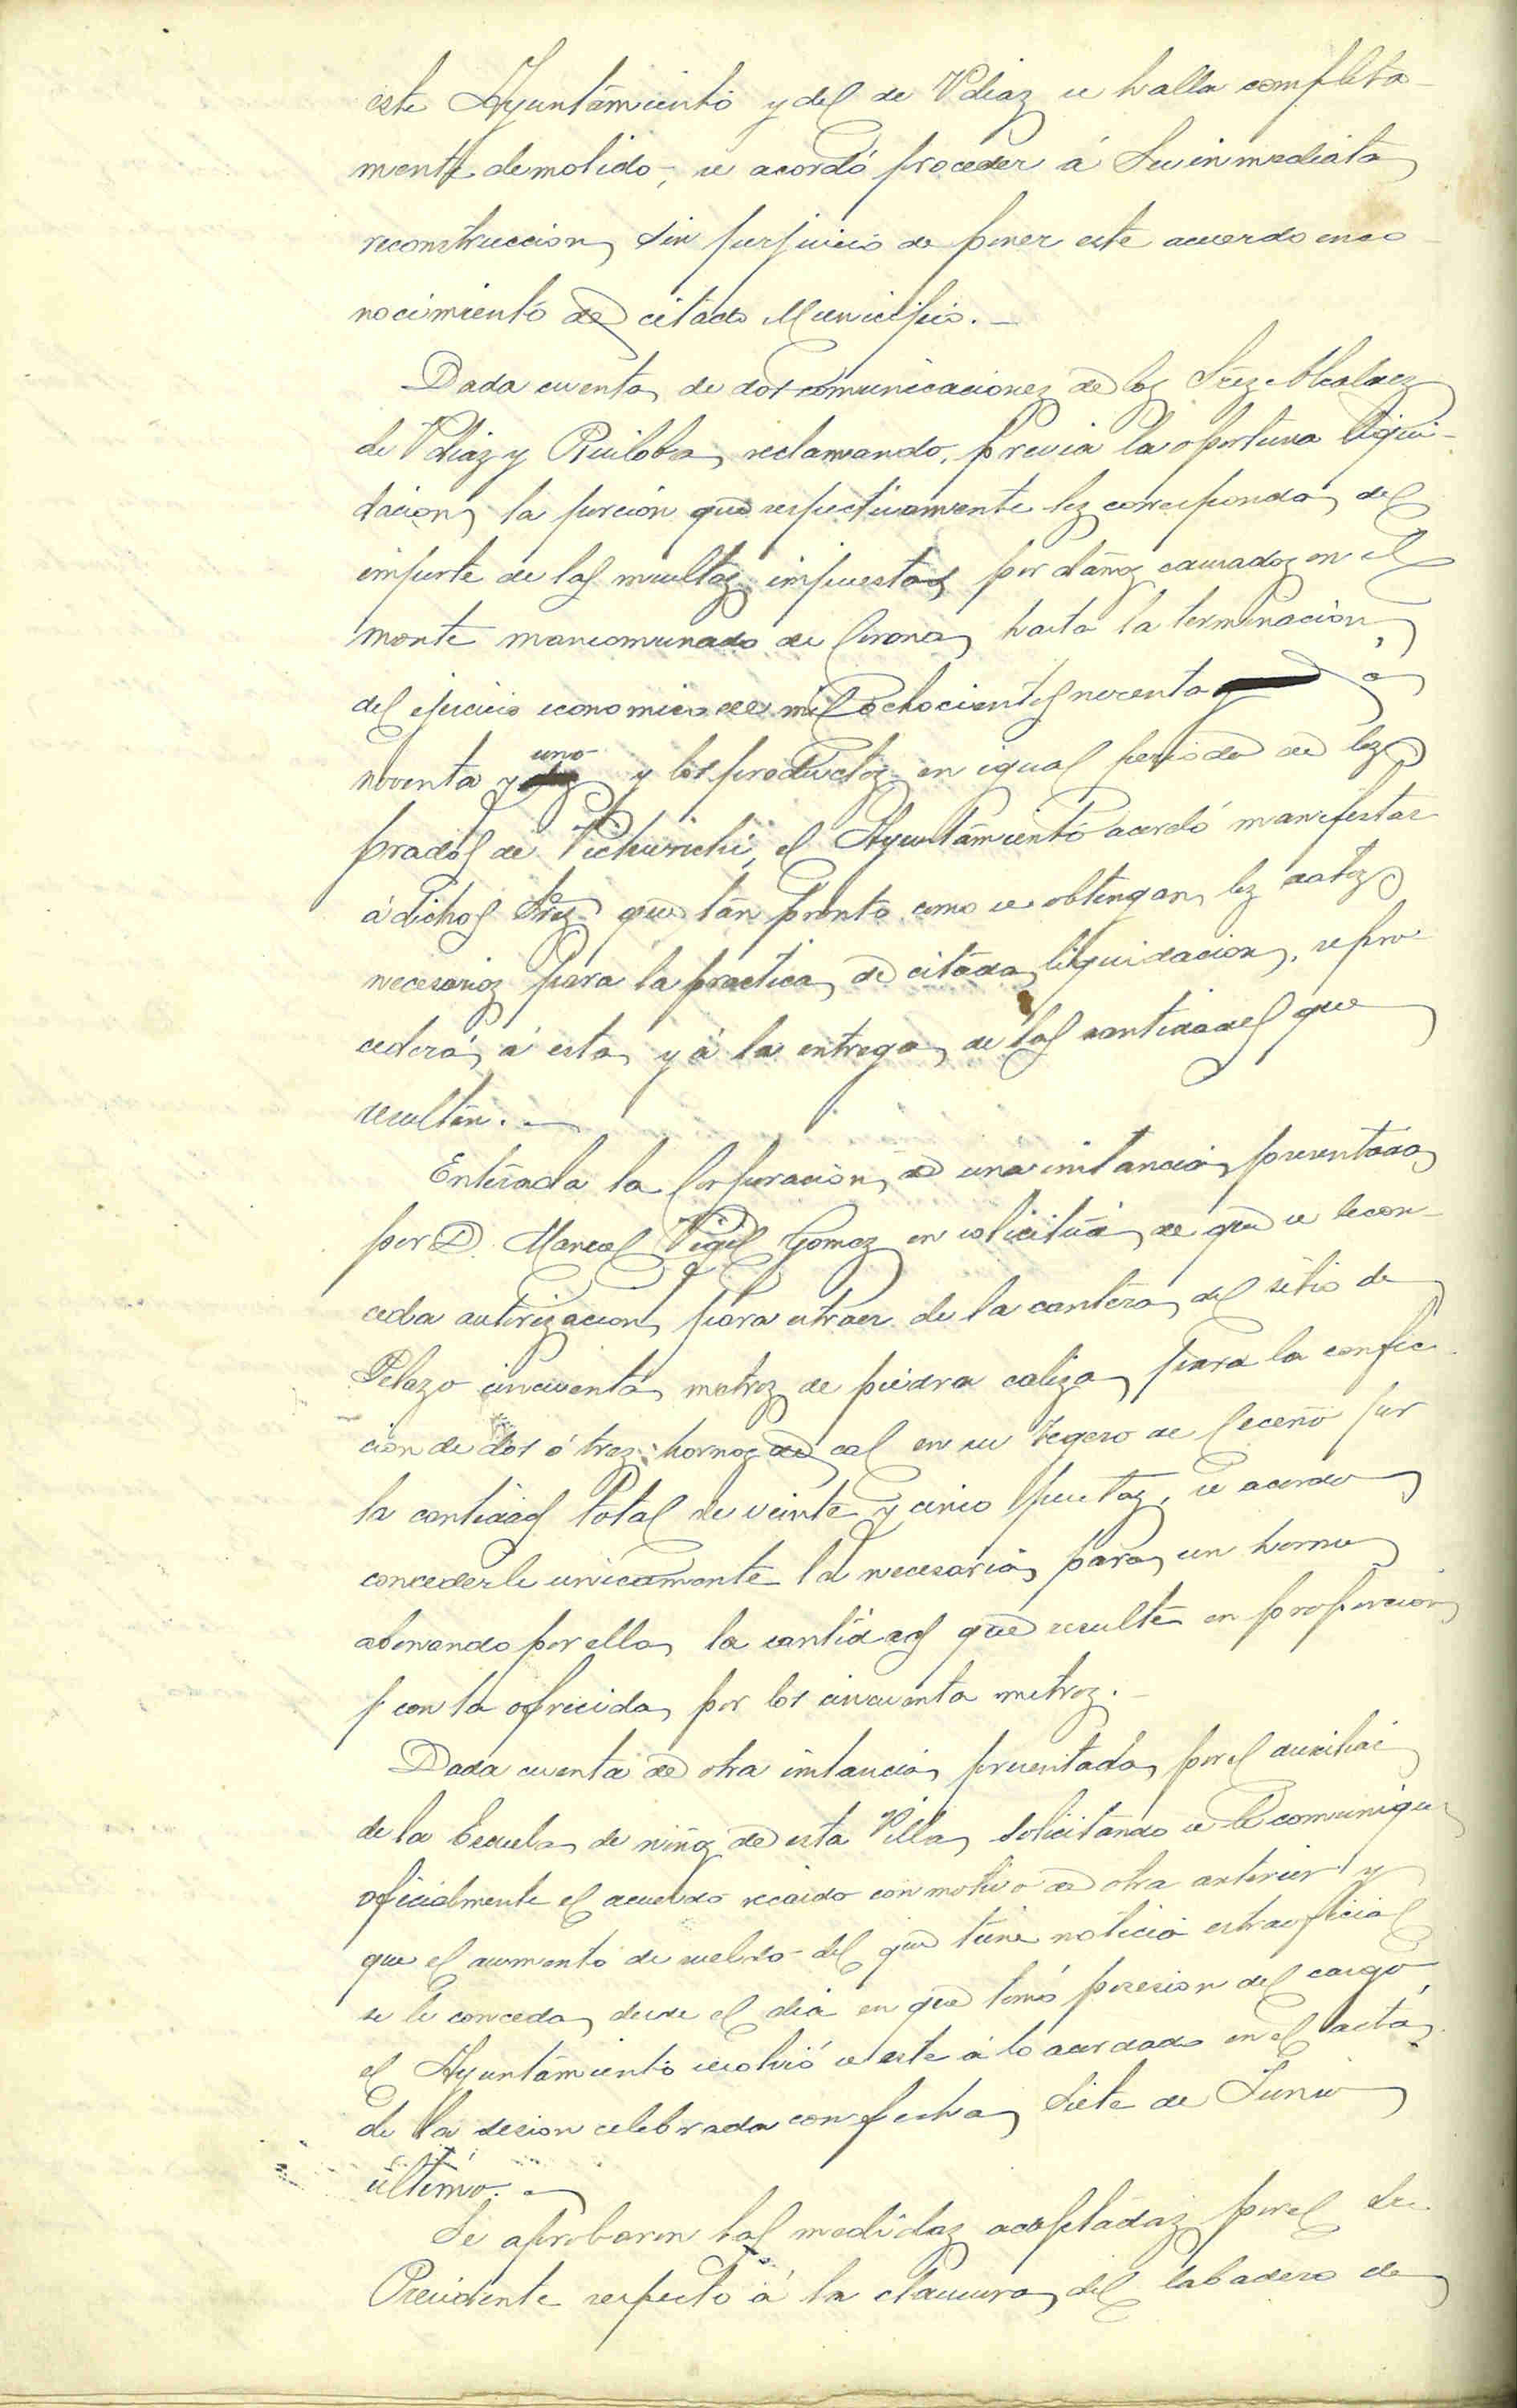 este Ayuntamiento y del de Vdíaz se halla completa-
mente demolido, se acordó proceder á su inmediata
reconstruccion, sin perjuicio de poner este acuerdo en co-
nocimiento de citado Municipio.—
Dada cuenta de dos comunicaciones de los Sres. Alcaldes
de Vdíaz y Ruiloba, reclamando, previa la oportuna liqui-
dacion, la porción que respectivamente les corresponda del
importe de las multas impuestas por daños causados en el
monte mancomunado de Corona, hasta la terminación
del ejercicio economico de mil ochocientos noventa á
noventa y uno y los productos en igual periodo de los
prados de el Ayuntamiento acordó manifestar
á dichos Sres. que tan pronto como se obtengan los datos
necesarios para la practica de citada liquidacion, se pro-
cederá á esta y á la entrega de las cantidades que
resulten.—
Enterada la Corporación de una instancia presentada
por D. Marcos Vigil Gomez en solicitud de que se le con-
ceda autorizacion para estraer de la cantera del sitio de
Pelazo cincuenta metros de piedra caliza para la confec-
ción de dos ó tres hornos de cal en su de Ceceño por
la cantidad total de veinte y cinco pesetas, se acordó
concederle unicamente la necesaria para un horno
abonando por ella la cantidad que resulte en proporción
con la ofrecida por los cincuenta metros.—
Dada cuenta de otra instancia presentada por el auxiliar
de la Escuela de niños de esta Villa solicitando se le comunique
oficialmente el acuerdo recaido con motivo de otra anterior y
que el aumento de sueldo del que tiene noticia estraoficial
se le conceda desde el día en que tomó posesion del cargo,
el Ayuntamiento resolvió se este á lo acordado en el acta
de la sesion celebrada con fecha siete de Junio
último.—
Se aprobaron las medidas acoptadas por el Sr.
Presidente respecto á la clausura del labadero de